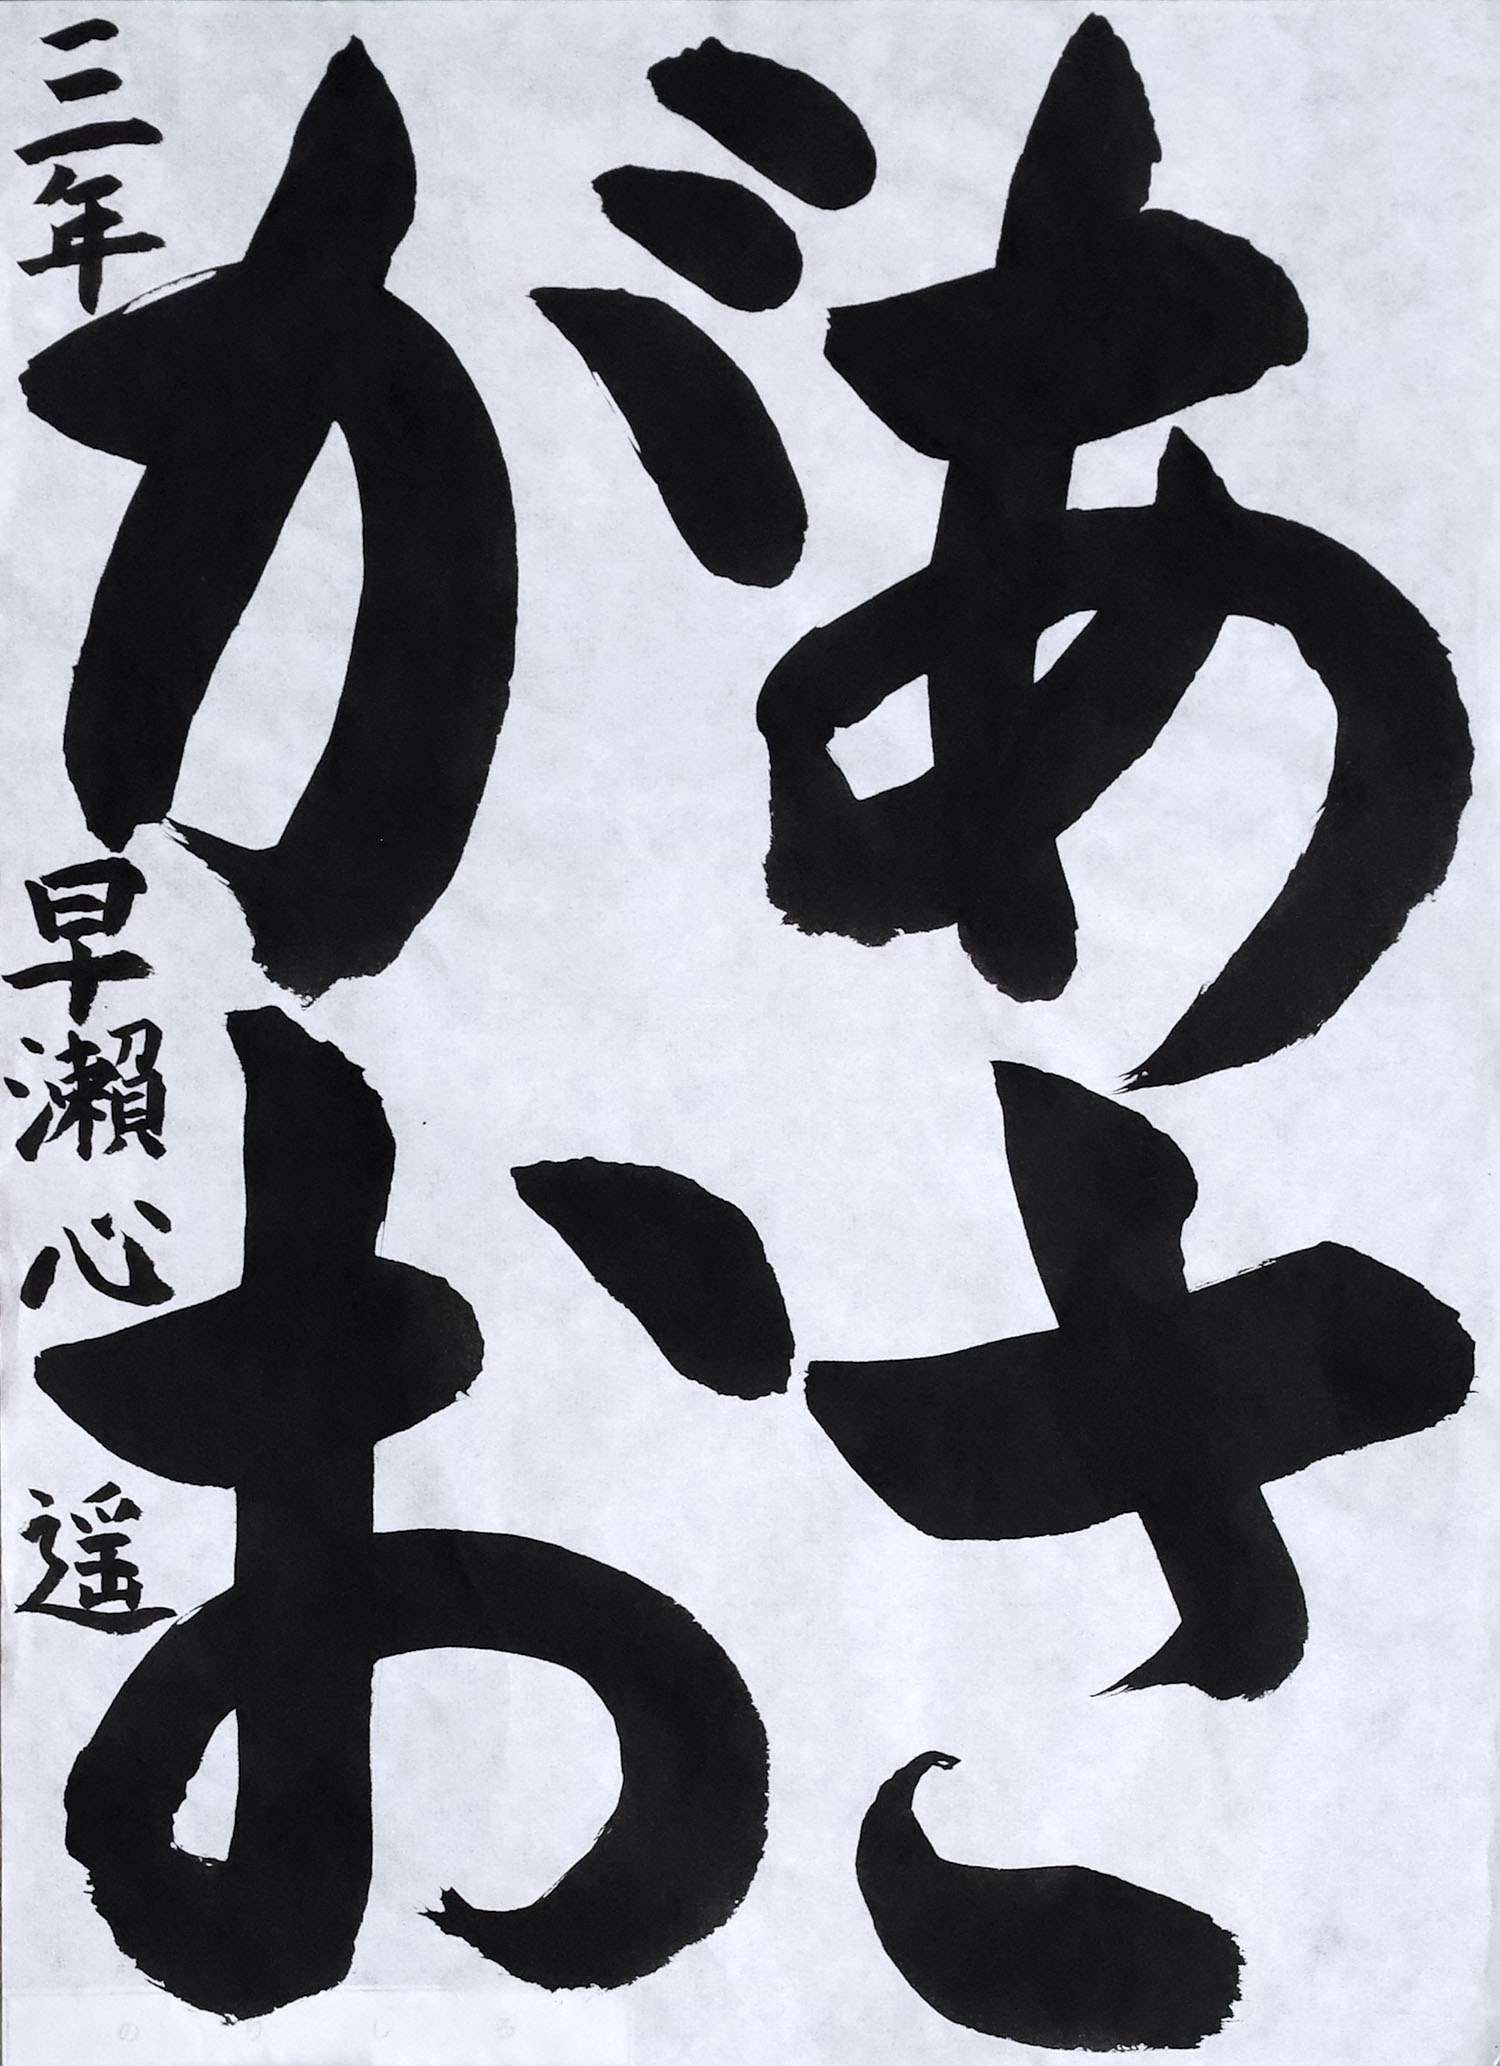 あさ
がお
三年 早瀬心遥
のりしろ